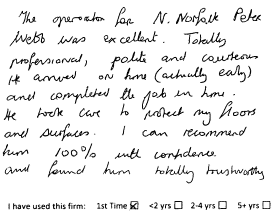 The operator for N. Norfolk Peter
Webb was excellent. Totally
professional, polite and courteous
He arrived on time (actually early)
and completed the job in home.
He took care to protect my floors
and surfaces. I can recommend
him 100% with confidence.
and found him totally trustworthy
I have used this firm: 1st Time ☒ <2 yrs ☐ 2-4 yrs ☐ 5+ yrs ☐